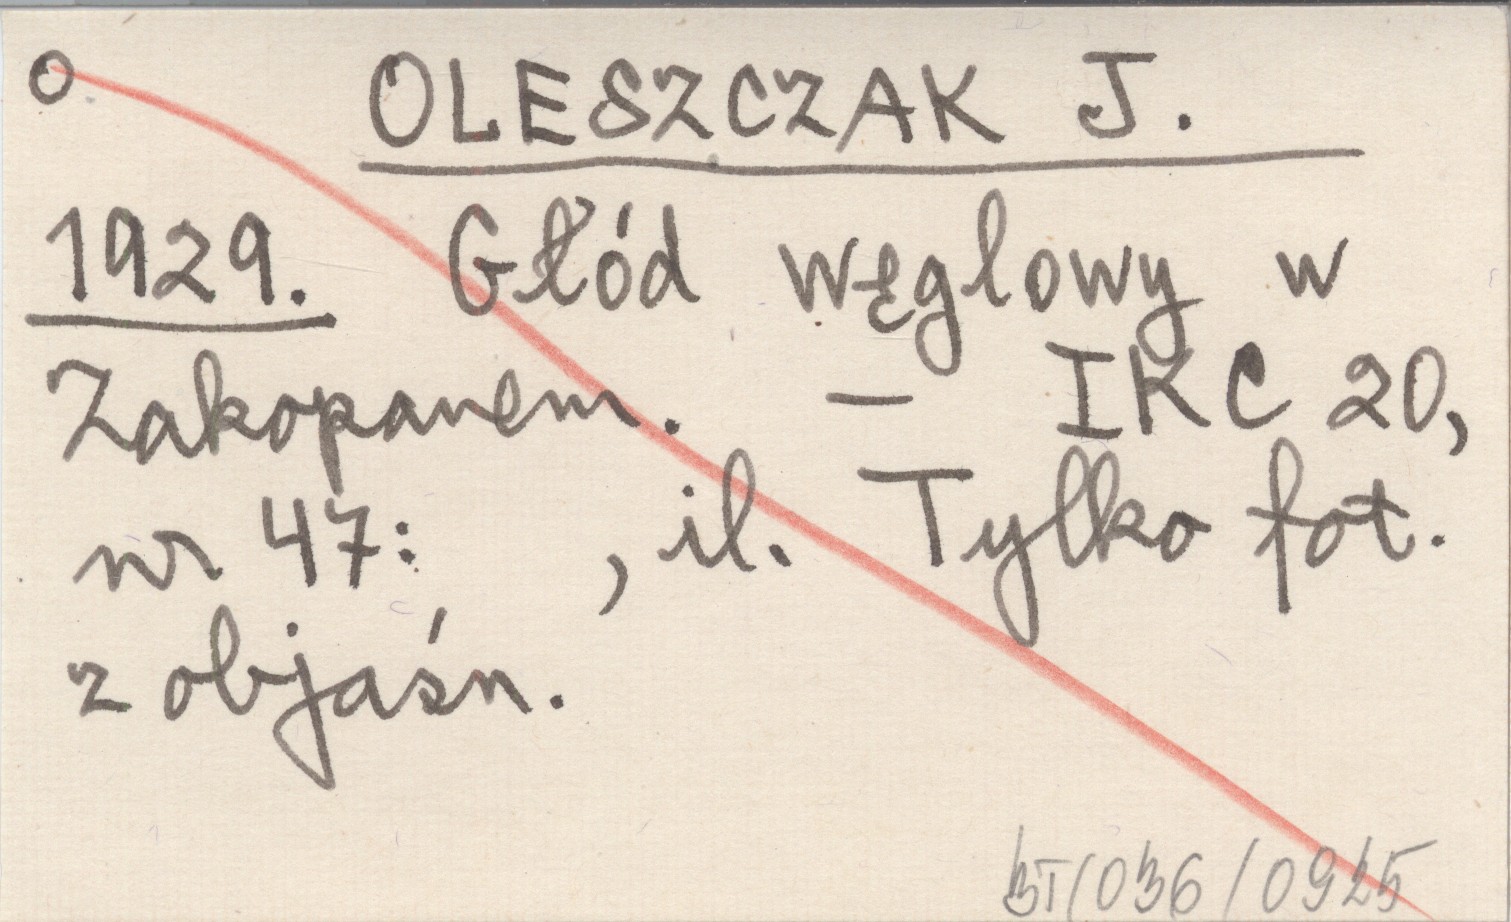 O OLESZCZAK J.
1929. Głód węglowy w
Zakopanem. — IKC 20,
nr 47: , il. Tylko fot.
z objaśn.
BT/036/0925